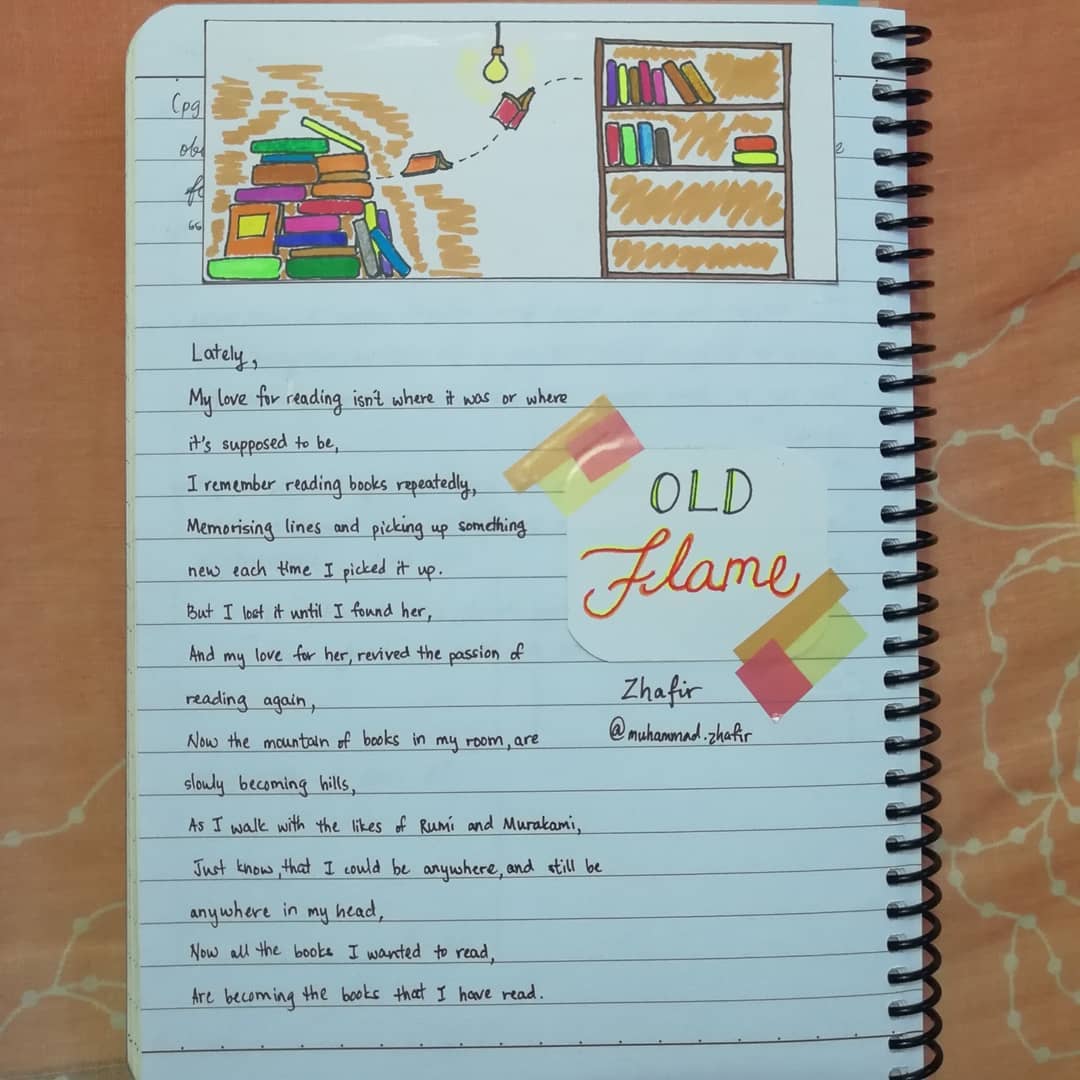 Lately,
My love for reading isn't where it was or where
it's supposed to be,
I remember reading books repeatedly,
Memorising lines and picking up something
new each time I picked it up.
But I lost it until I found her,
And my love for her, revived the passion of
reading again,
Now the mountain of books in my room, are
slowly becoming hills,
As I walk with the likes of Rumi and Murakami,
Just know, that I could be anywhere, and still be
anywhere in my head,
Now all the books I wanted to read,
Are becoming the books that I have read.
OLD
Flame
Zhafir
@muhammad.zhafir